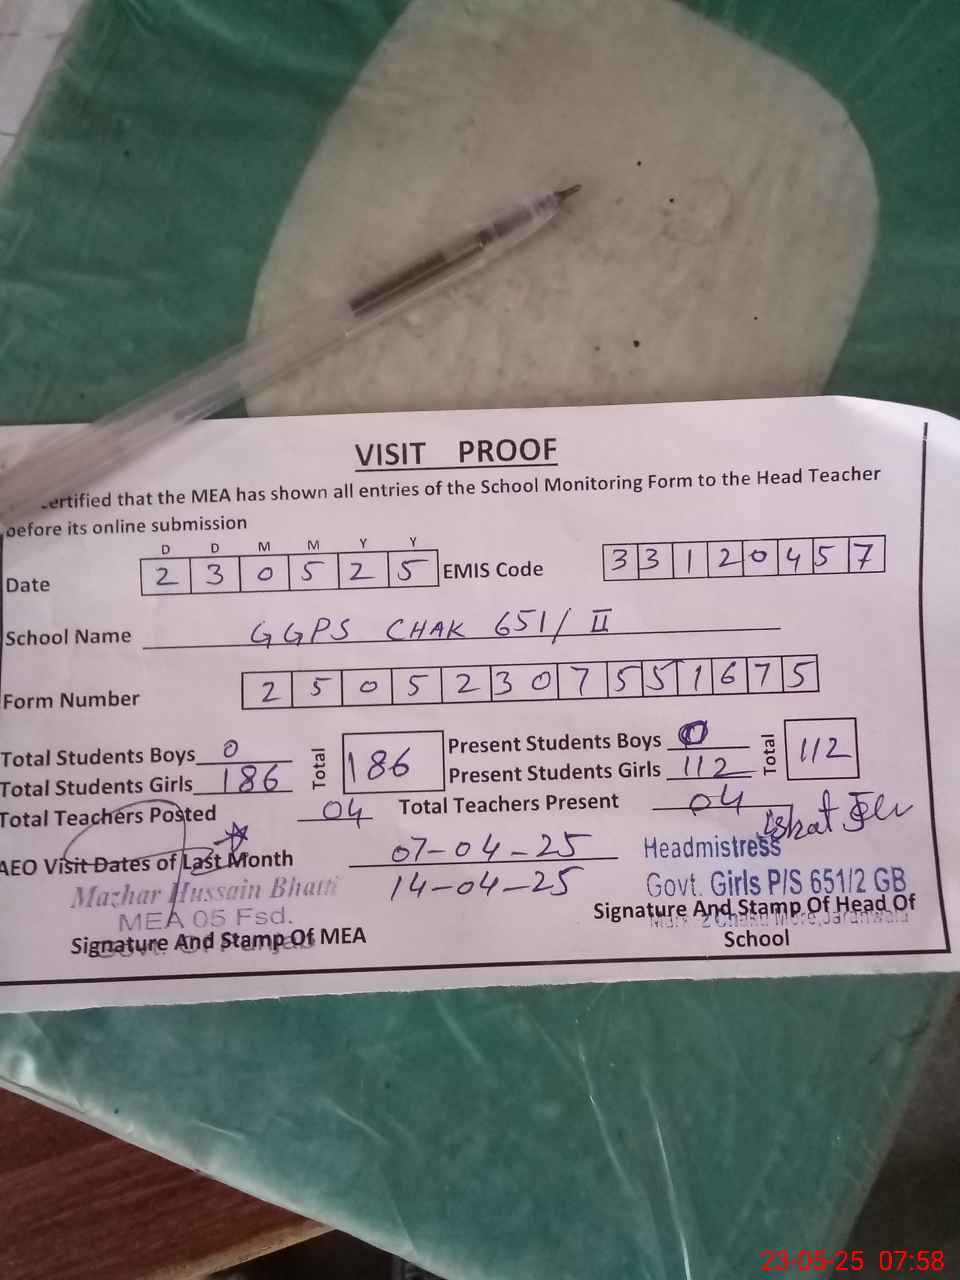 VISIT PROOF
ertified that the MEA has shown all entries of the School Monitoring Form to the Head Teacher
before its online submission
D D M M Y Y
Date 2 3 0 5 2 5 EMIS Code 3 3 1 2 0 4 5 7
School Name GGPS CHAK 651/II
Form Number 2 5 0 5 2 3 0 7 5 5 1 6 7 5
Total Students Boys 0 Total 186 Present Students Boys 0 Total 112
Total Students Girls 186 Present Students Girls 112
Total Teachers Posted 04 Total Teachers Present 04
AEO Visit Dates of Last Month 07-04-25
14-04-25
Headmistress
Govt. Girls P/S 651/2 GB
Mazhar Hussain Bhatti
MEA 05 Fsd.
Signature And Stamp Of MEA
Signature And Stamp Of Head Of
School
23-05-25 07:58